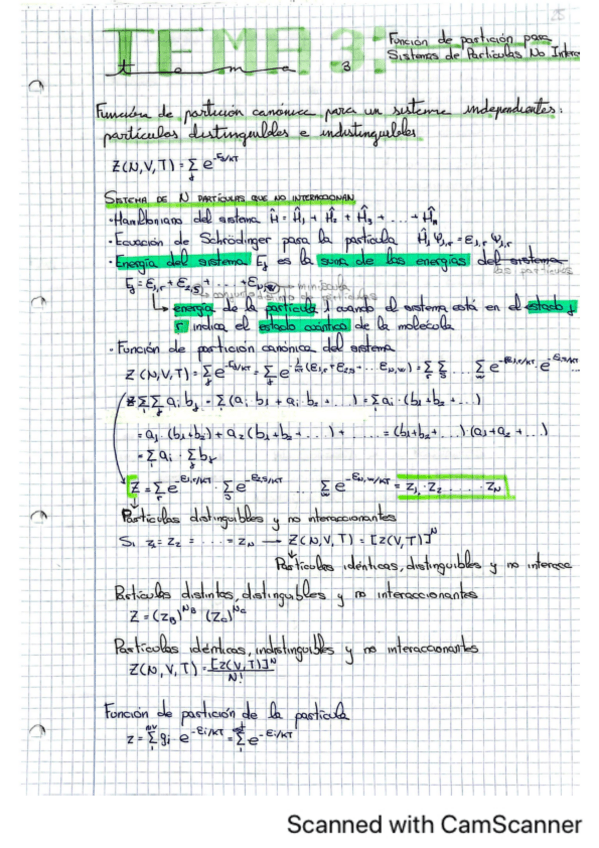 25
TEMA 3:
tema 3
Función de partición para
Sistemas de Partículas No Intera
Función de partición canónica para un sistema independientes:
partículas distinguibles e indistinguibles
Z(N,V,T) = Σ e^-Ej/KT
SISTEMA DE N PARTÍCULAS QUE NO INTERACCIONAN
· Hamiltoniano del sistema Ĥ = Ĥ₁ + Ĥ₂ + Ĥ₃ + ... + Ĥn
· Ecuación de Schrödinger para la partícula Ĥj Ψj,r = εj,r Ψj,r
· Energía del sistema Ej es la suma de las energías del sistema
las partículas
Ej = ε1,r + ε2,s + ... + εN,w
energía de la partícula 1 cuando el sistema está en el estado j
r indica el estado cuántico de la molécula
· Función de partición canónica del sistema
Z(N,V,T) = Σ e^-Ej/KT = Σ e^-1/KT (ε1,r + ε2,s + ... εN,w) = Σ Σ ... Σ e^-ε1,r/KT · e^-ε2,s/KT ...
Σ Σ ai bj = Σ (ai b1 + ai b2 + ...) = Σ ai · (b1 + b2 + ...)
= a1 · (b1+b2) + a2 (b1+b2+ ...) + ... = (b1+b2+ ...) · (a1+a2+ ...)
= Σ ai · Σ bj
Z = Σ e^-ε1,r/KT · Σ e^-ε2,s/KT ... Σ e^-εN,w/KT = z1 · z2 ..... zN
Partículas distinguibles y no interaccionantes
Si z1 = z2 = ... = zN → Z(N,V,T) = [z(V,T)]^N
Partículas idénticas, distinguibles y no interacc
Partículas distintas, distinguibles y no interaccionantes
Z = (zB)^NB (zC)^NC
Partículas idénticas, indistinguibles y no interaccionantes
Z(N,V,T) = [z(V,T)]^N / N!
Función de partición de la partícula
z = Σ gi e^-εi/KT = Σ e^-εi/KT
Scanned with CamScanner